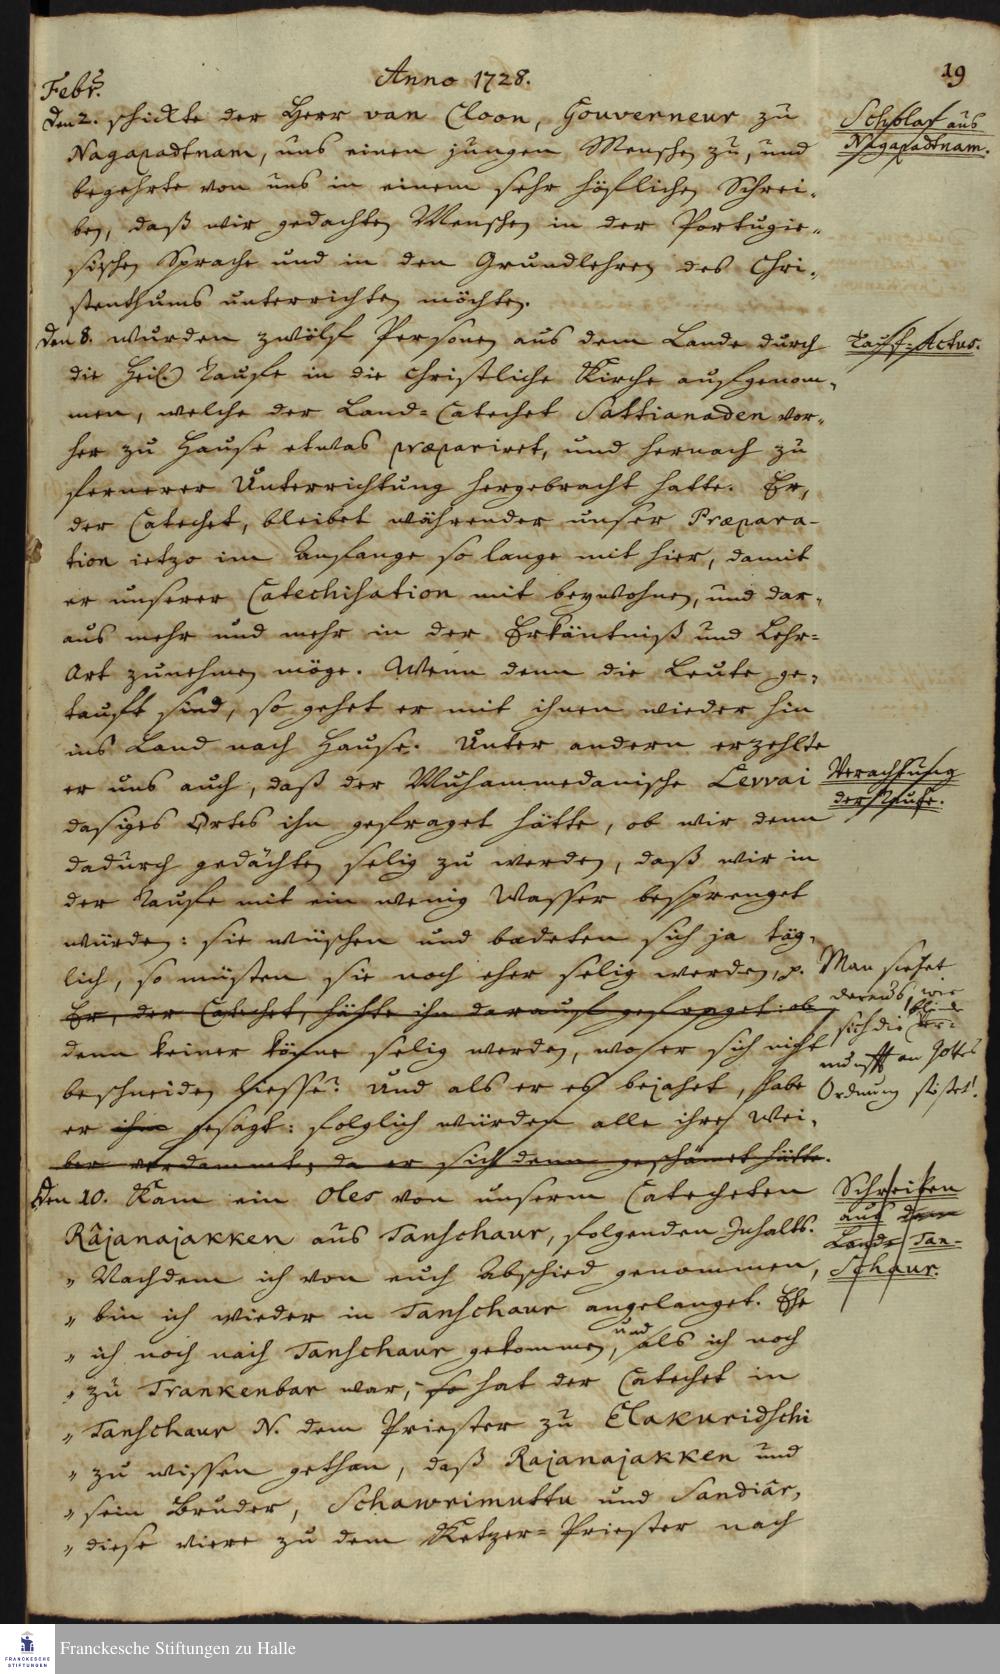 19
Anno 1728.
Febr.
Den 2. schickte der Herr van Cloon, Gouverneur zu
Nagapadtnam, uns einen jungen Menschen zu, und
begehrte von uns in einem sehr höflichen Schrei-
ben, daß wir gedachten Menschen in der Portugie-
sischen Sprache und in den Grundlehren des Chri-
stenthums unterrichten möchten.
Den 8. wurden zwölf Personen aus dem Lande durch
die Heil. Taufe in die christliche Kirche aufgenom-
men, welche der Land-Catechet Sattianaden vor-
her zu Hause etwas præpariret, und hernach zu
fernerer Unterrichtung hergebracht hatte. Er,
der Catechet, bleibet währender unser Præpara-
tion ietzo im Anfange so lange mit hier, damit
er unserer Catechisation mit beywohnen, und dar-
aus mehr und mehr in der Erkäntniß und Lehr-
Art zunehmen möge. Wenn denn die Leute ge-
tauft sind, so gehet er mit ihnen wieder hin
ins Land nach Hause. Unter andern erzehlte
er uns auch, daß der Muhammedanische Levvai
dasiges Ortes ihn gefraget hätte, ob wir denn
dadurch gedächten selig zu werden, daß wir in
der Taufe mit ein wenig Wasser besprenget
würden: sie wüschen und badeten sich ja täg-
lich, so müsten sie noch eher selig werden, p.
Er, der Catechet, hätte ihn darauf gefraget: ob
denn keiner könne selig werden, wo er sich nicht
beschneiden liesse? Und als er es bejahet, habe
er ihm gesagt: folglich würden alle ihre Wei-
ber verdammt, da er sich denn geschämet hätte.
Den 10. Kam ein Oles von unserm Catecheten
Rájanajakken aus Tanschaur, folgenden Inhalts.
„ Nachdem ich von euch Abschied genommen,
„ bin ich wieder in Tanschaur angelanget. Ehe
„ ich noch nach Tanschaur gekommen, und als ich noch
„ zu Trankenbar war, so hat der Catechet in
„ Tanschaur N. dem Priester zu Elakuridschi
„ zu wissen gethan, daß Rajanajakken und
„ sein Bruder, Schawrimuttu und Sandiár,
„ diese viere zu dem Ketzer-Priester nach
Schüler aus
Nagapadtnam.
Tauf-Actus.
Verachtung
der Taufe.
Man siehet
daraus, wie
blind
sich die Ver-
nunfft an Gottes
Ordnung stösset!
Schreiben
aus dem
Lande Tan-
schaur.
Franckesche Stiftungen zu Halle
FRANCKESCHE
STIFTUNGEN